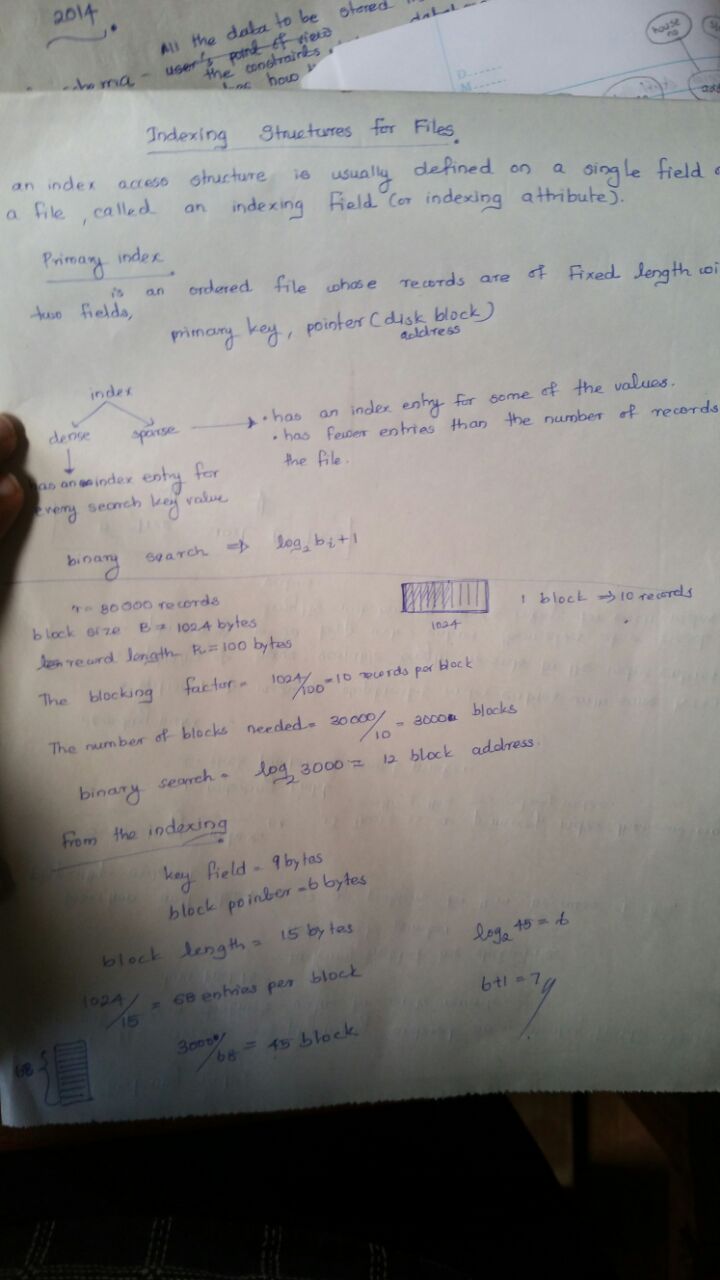 2014
All the data to be stored
user's point of view
the constraints
how
house
no
D
M
Indexing Structures for Files.
an index access structure is usually defined on a single field
a file, called an indexing field (or indexing attribute).
Primary index
is an ordered file whose records are of Fixed length wi
two fields,
primary key, pointer (disk block)
address
index
dense sparse
• has an index entry for some of the values.
• has fewer entries than the number of records
the file.
has an index entry for
every search key value
binary search ⇒ log₂ bi+1
r = 30000 records
block size B = 1024 bytes
record length R = 100 bytes
1024
1 block ⇒ 10 records
The blocking factor = 1024/100 = 10 records per block
The number of blocks needed = 30000/10 = 3000 blocks
binary search = log₂ 3000 = 12 block address.
From the indexing
key field = 9 bytes
block pointer = 6 bytes
block length = 15 bytes
log₂ 45 = 6
1024/15 = 68 entries per block
6+1 = 7
3000/68 = 45 block
68